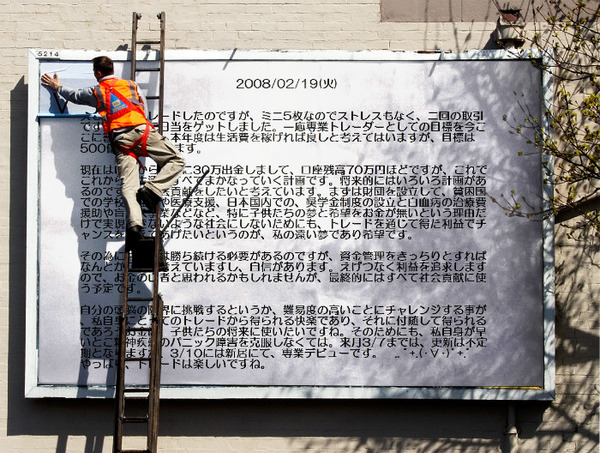 5214
2008/02/19(火)
レードしたのですが、ミニ5枚なのでストレスもなく、二回の取引
です 日当をゲットしました。一応専業トレーダーとしての目標を今ご
こに 本年度は生活費を稼げれば良しと考えてはいますが、目標は
500 ます。
現在は に30万出金しまして、口座残高70万円ほどですが、これで
これから べてまかなっていく計画です。将来的にはいろいろ計画があ
るので 貢献をしたいと考えています。まずは財団を設立して、貧困国
での学校 や医療支援、日本国内での、奨学金制度の設立と白血病の治療費
援助や盲 業などなど、特に子供たちの夢と希望をお金が無いという理由だ
けで実現 ないような社会にしないためにも、トレードを通じて得た利益でチ
ャンスを あげたいというのが、私の遠い夢であり希望です。
その為に は勝ち続ける必要があるのですが、資金管理をきっちりとすれば
なんとか 考えていますし、自信があります。えげつなく利益を追求します
ので、お金の 者と思われるかもしれませんが、最終的にはすべて社会貢献に使
う予定です。
自分の 界に挑戦するというか、難易度の高いことにチャレンジする事が
、私自身 てのトレードから得られる快楽であり、それに付随して得られる
であろ 子供たちの将来に使いたいですね。そのためにも、私自身が早
いとこ 神疾患のパニック障害を克服しなくては。来月3/7までは、更新は不定
期となりますが、3/10には新居にて、専業デビューです。 .. ¨+.(・∀・)¨+.
やっぱ トレードは楽しいですね。